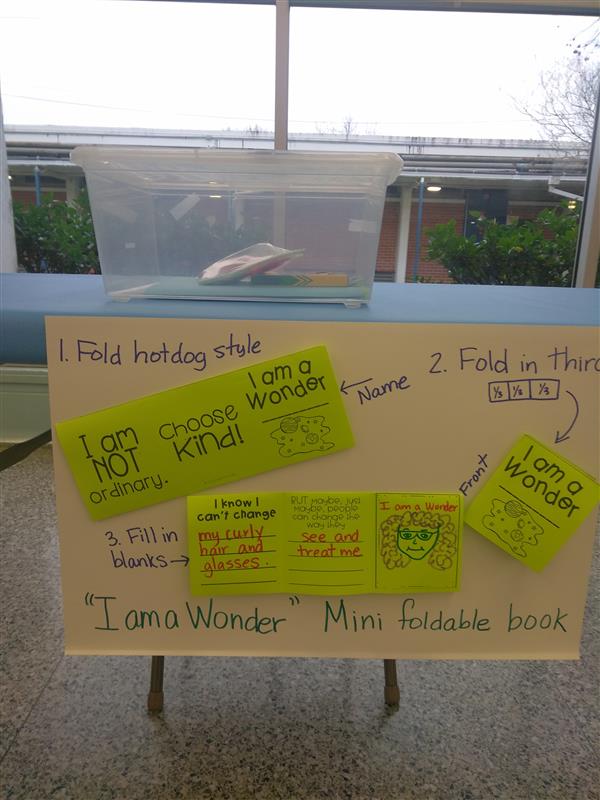 1. Fold hotdog style
2. Fold in third
1/3 1/3 1/3
I am
NOT
ordinary.
Choose
Kind!
I am a
Wonder
Name
Front
I am a
Wonder
3. Fill in
blanks
I know I
can't change
my curly
hair and
glasses.
BUT maybe, just
maybe, people
can change the
way they
see and
treat me
I am a Wonder
"I am a Wonder" Mini foldable book